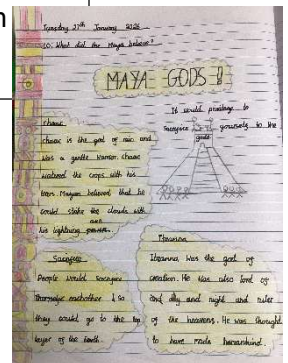 n
Tuesday 27th January 2026
LO: What did the Maya believe?
MAYA GODS!
It would privilege to
sacrifice yourself to the
gods
chaac
chaac is the god of rain and
was a gentle warrior. Chaac
watered the crops with his
tears Mayans believed that he
could stake the clouds with
his lightning
Sacrifice
People would sacrifice
eachother & so
they could go to the top
layer of the Earth.
Itzamna
Itzamna was the god of
creation. He was also lord of
and day and night and ruler
of the heavens. He was thought
to have made humankind.